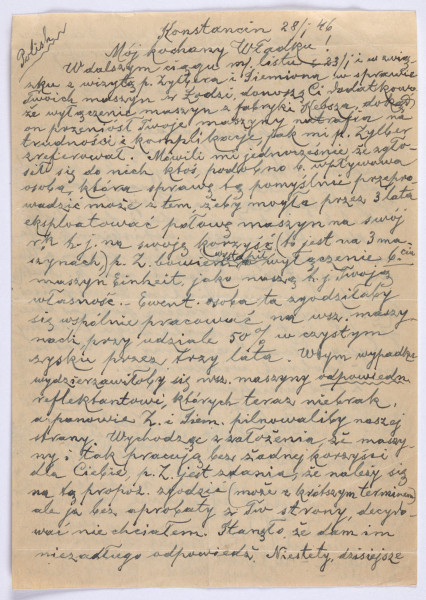 Polish
Konstancin 28/I 46
Mój kochany Władku!
W dalszym ciągu mj. listu z 23/I i w zwią-
zku z wizytą p. Zylbera i Siemiona w sprawie
Twoich maszyn w Łodzi, donoszę Ci dodatkowo
że wyłączenie maszyn z fabryki dokąd
on przeniósł Twoje maszyny natrafia na
trudności i komplikacje, jak mi p. Zylber
zreferował. Mówili mi jednocześnie że zgło-
sił się do nich ktoś, podobno b. wpływowa
osoba, która sprawę tą pomyślnie przepro-
wadzić może z tem, żeby mogła przez 3 lata
eksploatować połowę maszyn na swój
r-k h. j. na swoją korzyść (to jest na 3 ma-
szynach) p. Z. bowiem wyłączenie 6-ciu
maszyn Einheit, jako naszą h. j. Twoją
własność. - Ewent. osoba ta zgodziłaby
się wspólnie pracować na wsz. maszy-
nach przy udziale 50% w czystym
zysku przez trzy lata. W tym wypadku
wydzierżawiłoby się wsz. maszyny odpowiedn.
reflektantowi, których teraz nie brak,
a panowie Z. i Siem. pilnowaliby naszej
strony. Wychodząc z założenia, że maszy-
ny i tak pracują bez żadnej korzyści
dla Ciebie, p. Z. jest zdania, że należy się
na tą propoz. zgodzić (może z krótszym terminem)
ale ja bez aprobaty z Tw strony decydo-
wać nie chciałem. Stanęło, że dam im
niezadługo odpowiedź. Niestety, dzisiejsze